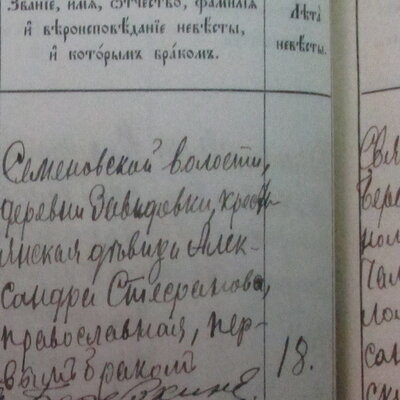 Званіе, имѧ, ѻтчество, фамиліѧ
и҆ вѣроисповѣданіе невѣсты,
и҆ которымъ бракомъ.
Лѣта
невѣсты.
Семеновской волости,
деревни Завидовки, кресть
янская дѣвица Алек-
сандра Стефанова,
православная, пер-
вымъ бракомъ
18.